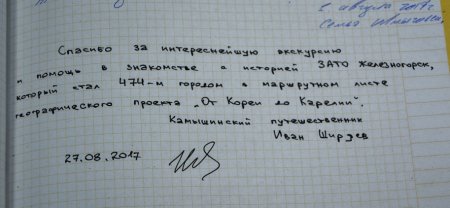 августа 2017 г.
Спасибо за интереснейшую экскурсию
и помощь в знакомстве с историей ЗАТО Железногорск,
который стал 474-м городом в маршрутном листе
географического проекта „От Кореи до Карелии".
Камышинский путешественник
Иван Ширяев
27.08.2017